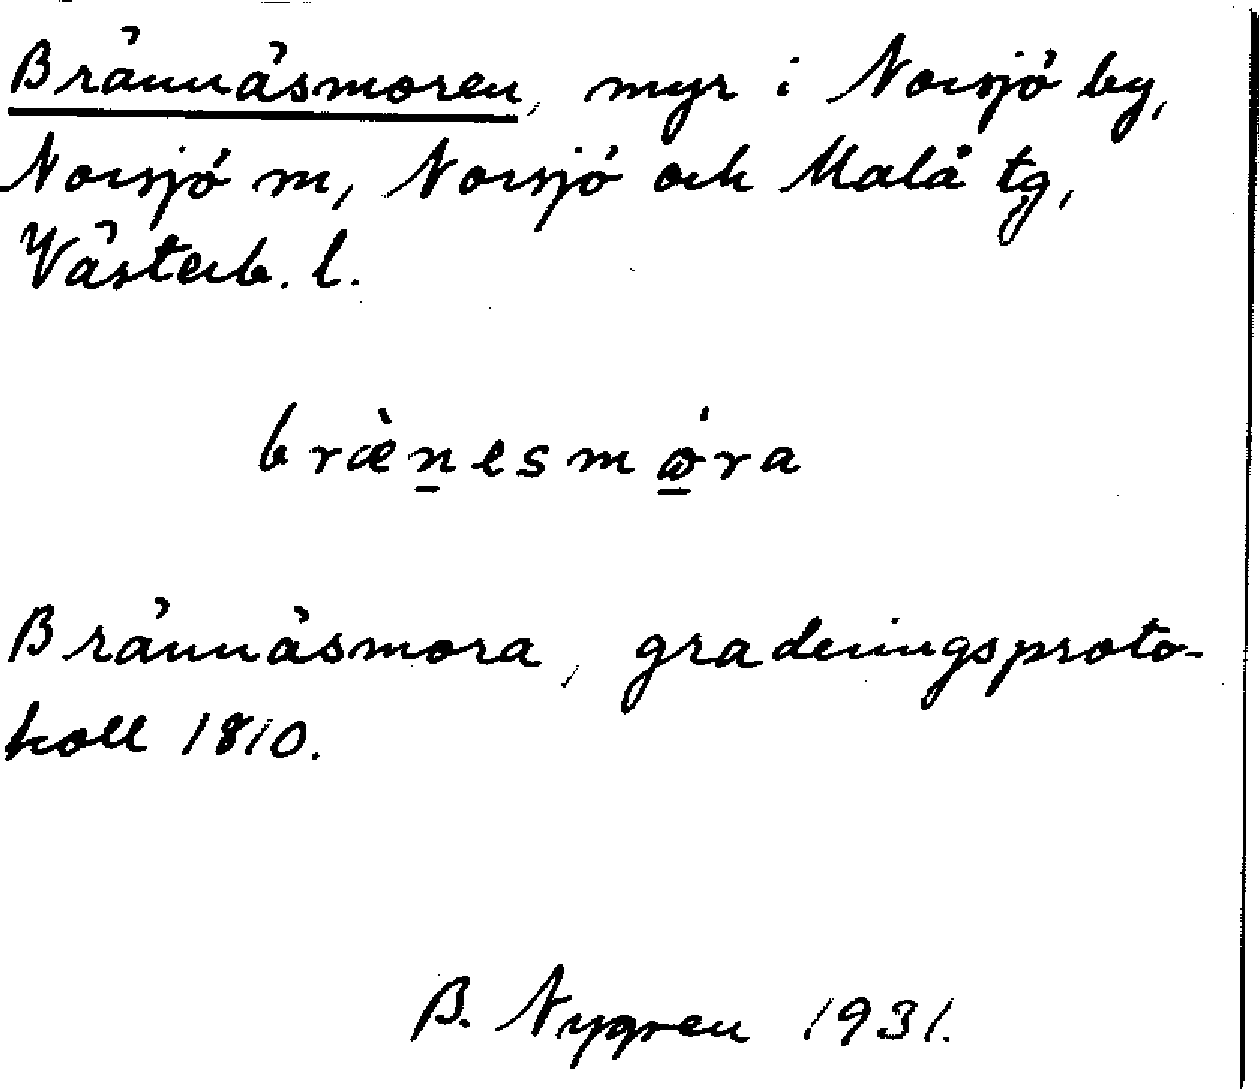 Brännäsmoren, myr i Norsjö by,
Norsjö m, Norsjö och Malå tg,
Västerb. l.
bræ̀n̠esmǿ̠ra
Brännäsmora, graderingsproto-
koll 1810.
B. Nygren 1931.